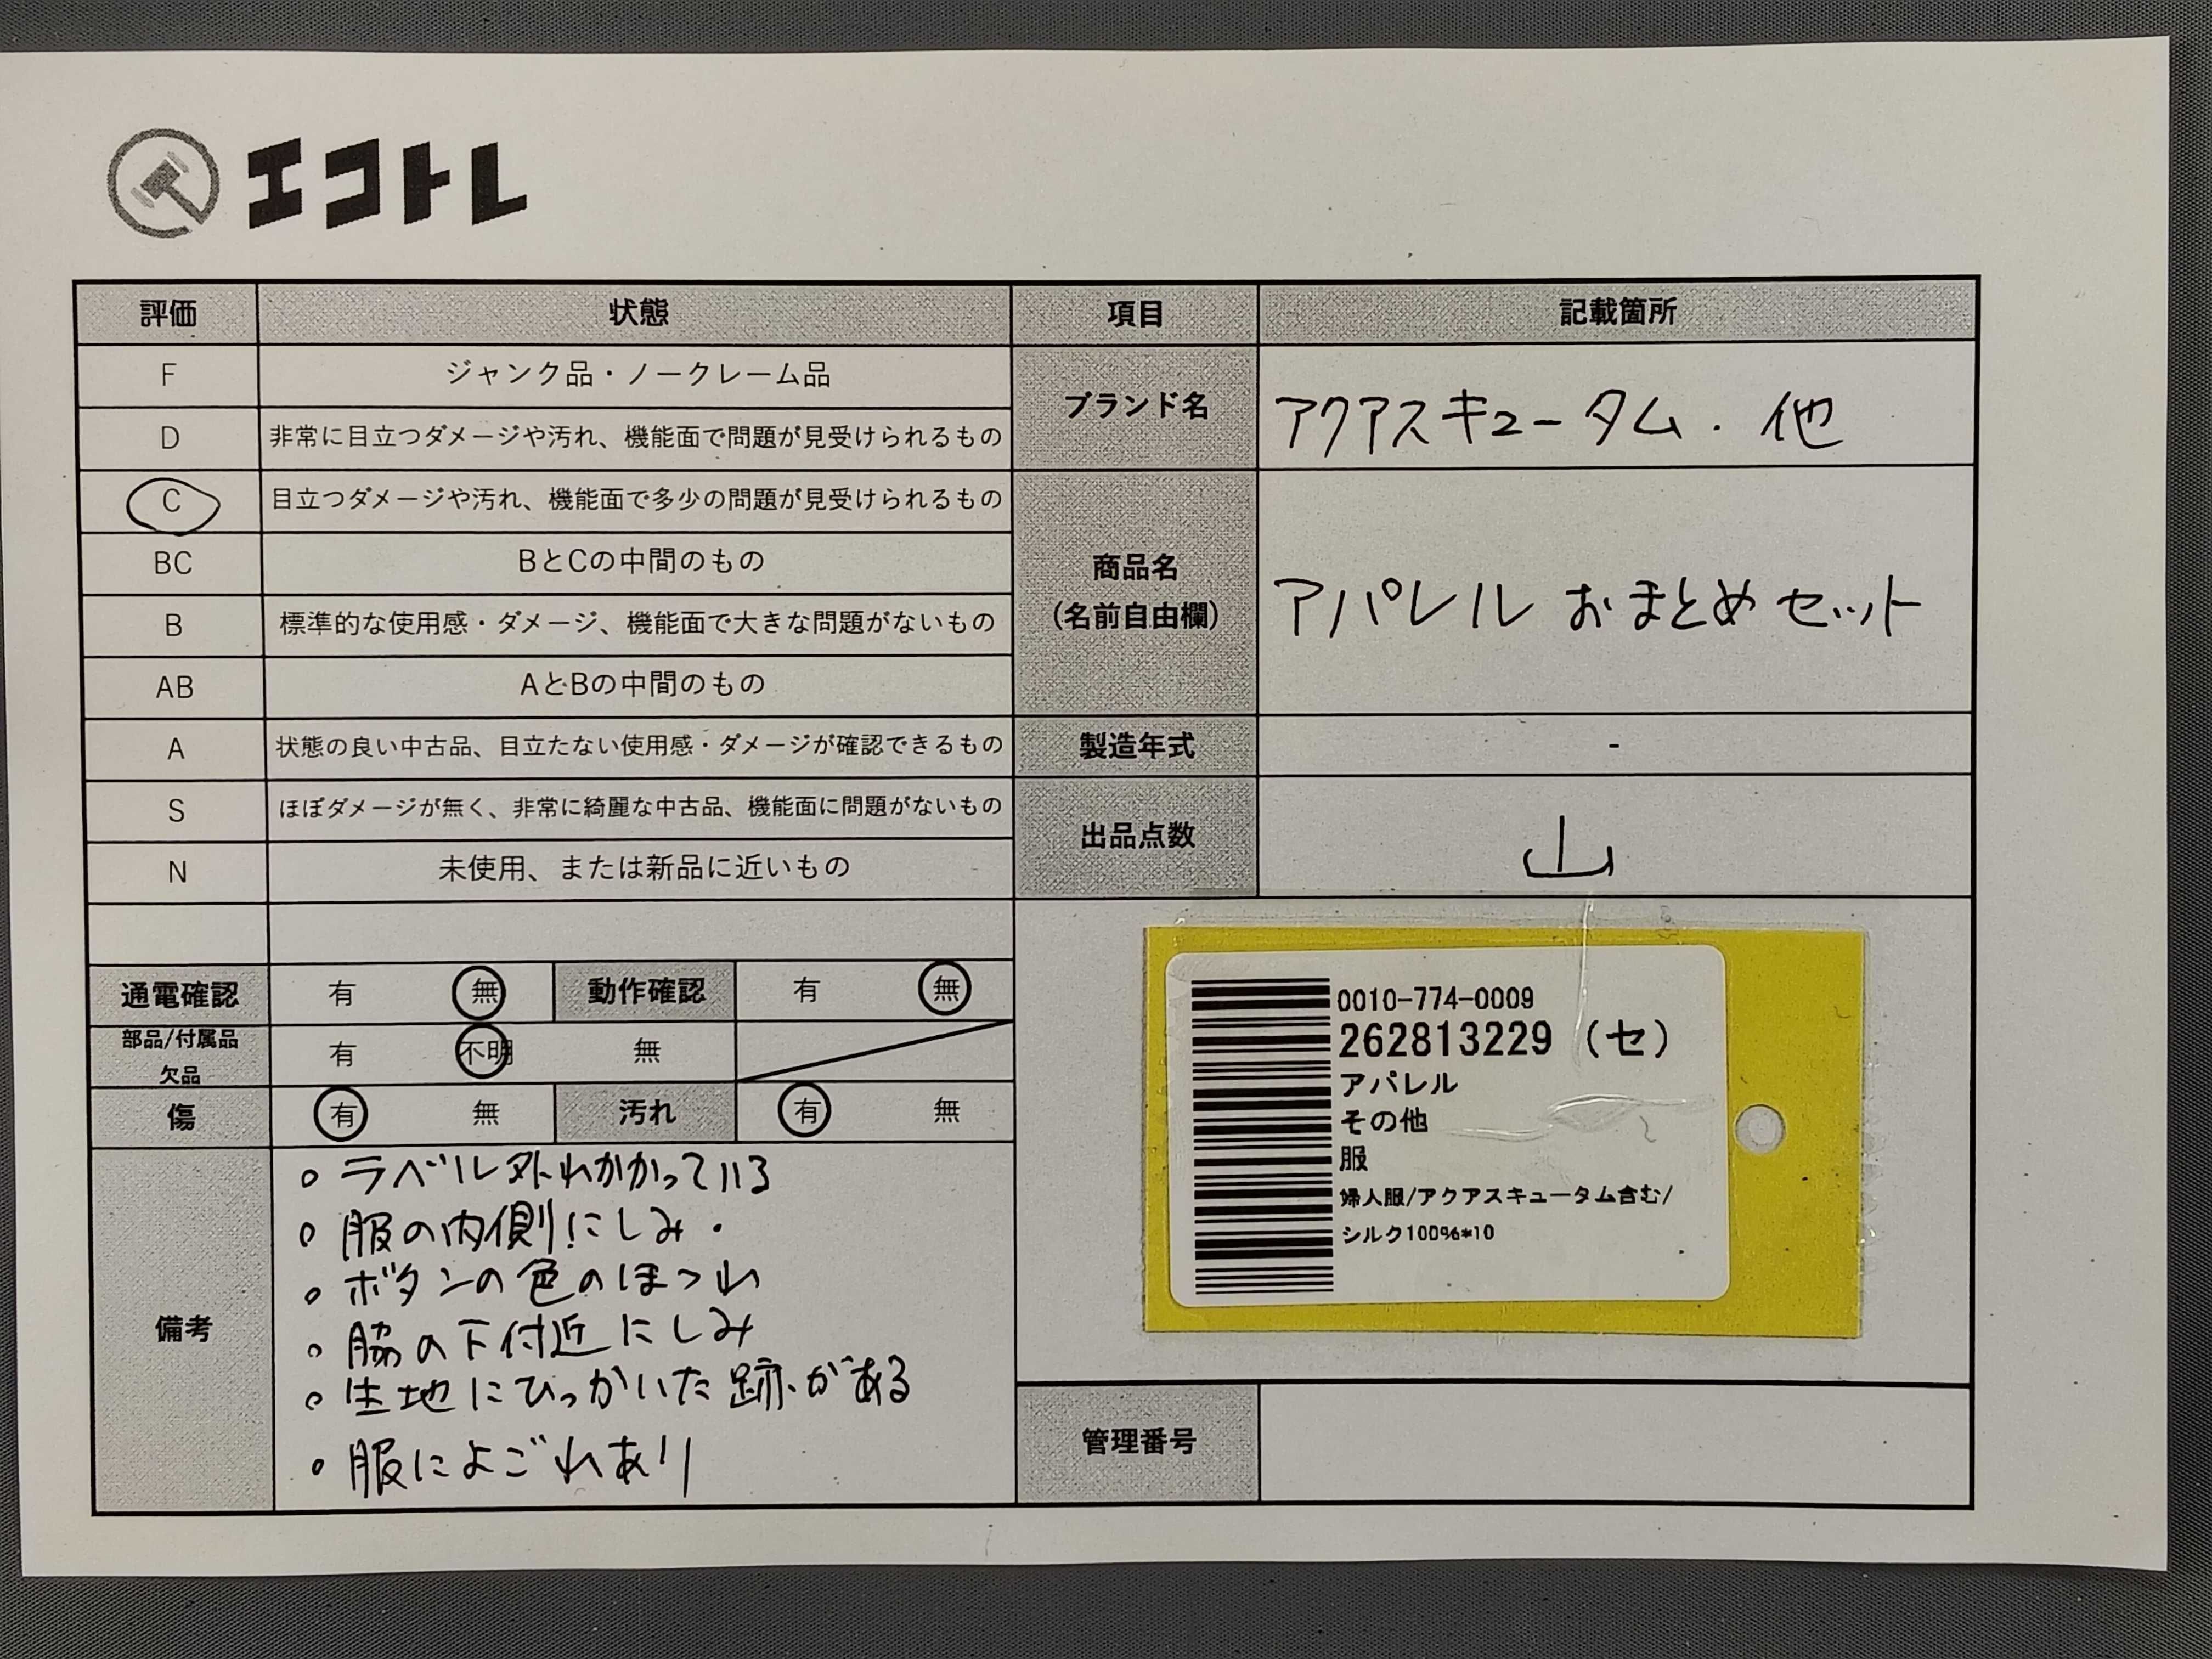 エコトレ
評価 状態 項目 記載箇所
F ジャンク品・ノークレーム品
D 非常に目立つダメージや汚れ、機能面で問題が見受けられるもの
ブランド名 アクアスキュータム・他
C 目立つダメージや汚れ、機能面で多少の問題が見受けられるもの
BC BとCの中間のもの
B 標準的な使用感・ダメージ、機能面で大きな問題がないもの
AB AとBの中間のもの
商品名
(名前自由欄)
アパレル おまとめセット
A 状態の良い中古品、目立たない使用感・ダメージが確認できるもの
製造年式 -
S ほぼダメージが無く、非常に綺麗な中古品、機能面に問題がないもの
N 未使用、または新品に近いもの
出品点数 山
通電確認 有 無 動作確認 有 無
部品/付属品
欠品
有 不明 無
傷 有 無 汚れ 有 無
備考
。ラベル外れかかっている
。服の内側にしみ・
。ボタンの色のほつれ
。脇の下付近にしみ
。生地にひっかいた跡がある
。服によごれあり
0010-774-0009
262813229 (セ)
アパレル
その他
服
婦人服/アクアスキュータム含む/
シルク100%*10
管理番号